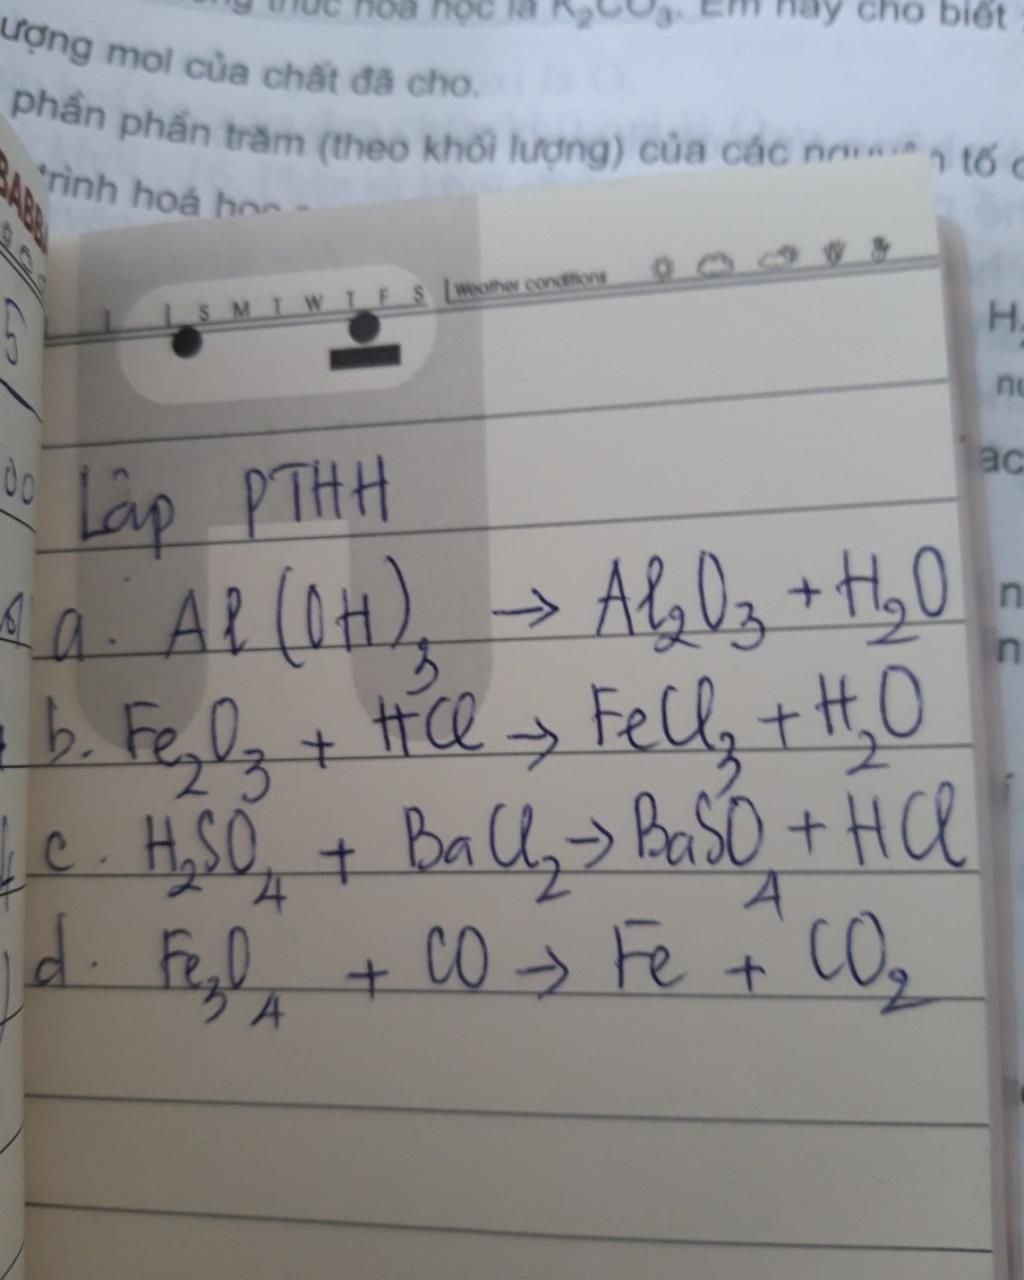 thức hoá học là K₂CO₃. Em hãy cho biết
ượng mol của chất đã cho.
phần phần trăm (theo khối lượng) của các nguyên tố
trình hoá học
BABB
S M T W T F S Weather conditions
5
00
Lập PTHH
a. Al(OH)₃ → Al₂O₃ + H₂O
b. Fe₂O₃ + HCl → FeCl₃ + H₂O
c. H₂SO₄ + BaCl₂ → BaSO₄ + HCl
d. Fe₃O₄ + CO → Fe + CO₂